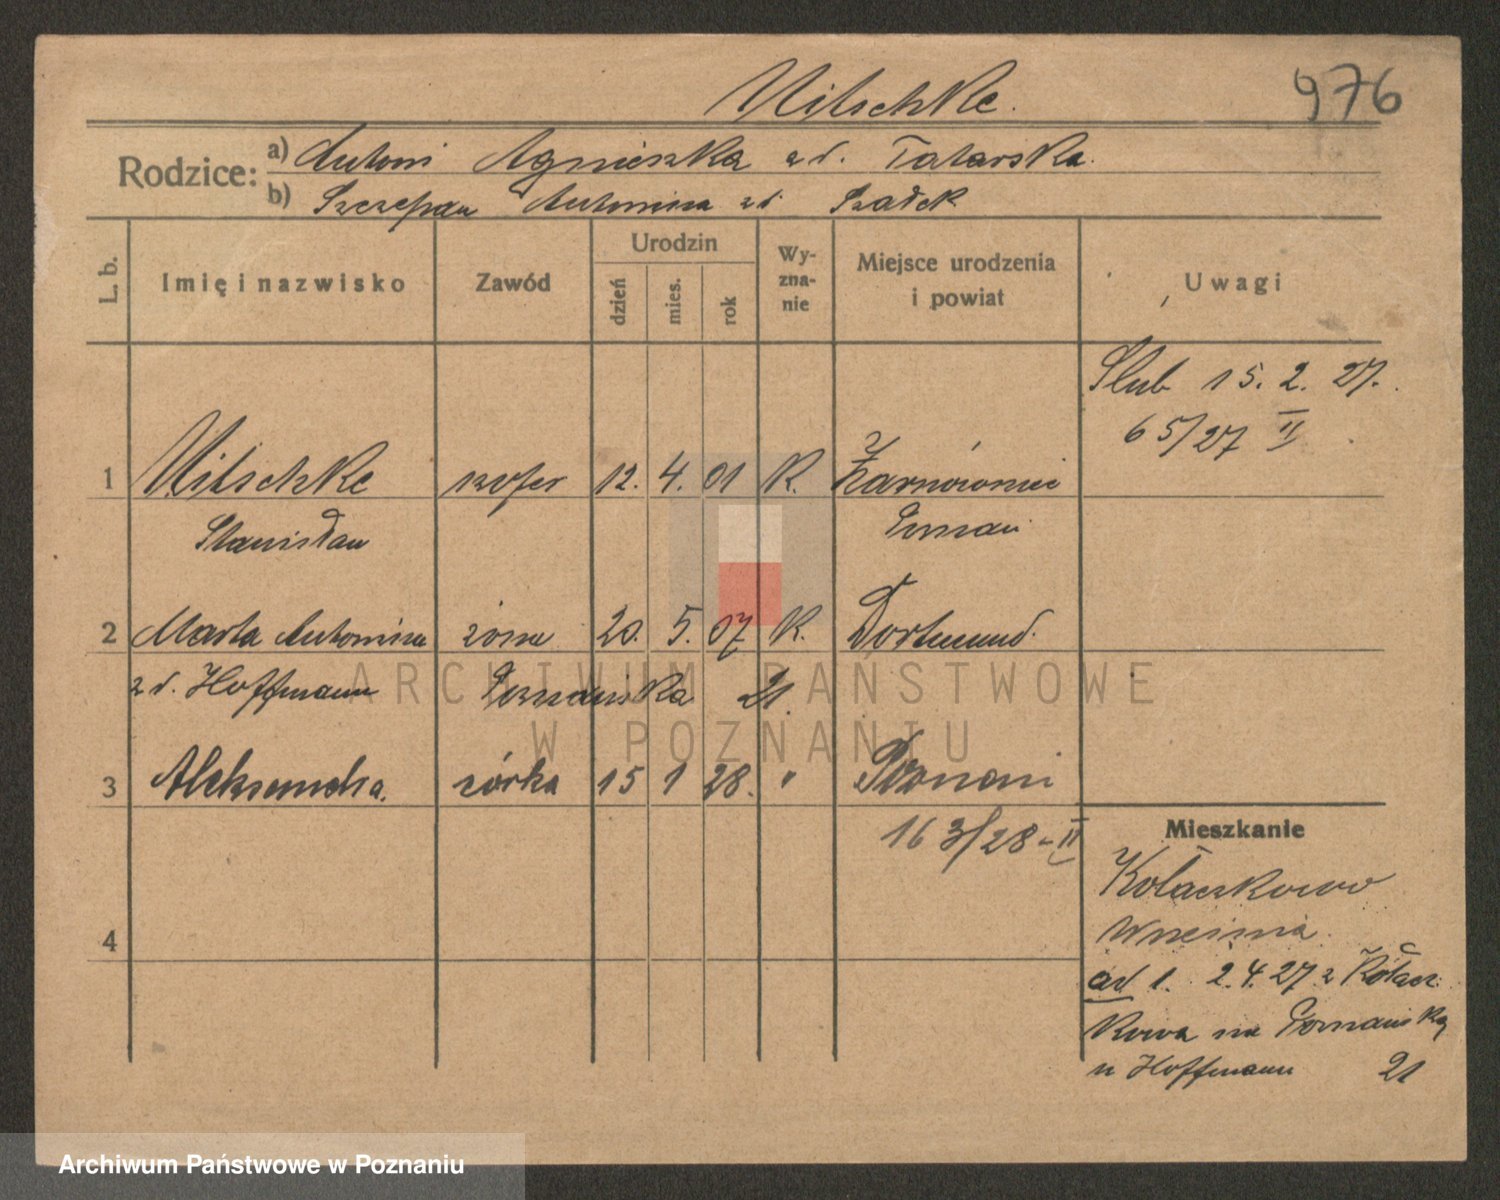 Nitschke.
976
Rodzice: a) Antoni Agnieszka z d. Tatarska.
b) Szczepan Antonina z d. Szałek
L. b. Imię i nazwisko Zawód Urodzin dzień mies. rok Wy-zna-nie Miejsce urodzenia i powiat Uwagi
Ślub 15. 2. 27.
65/27 II
1 Nitschke szofer 12. 4. 01 K. Żarnowiec
Stanisław Poznań
2 Marta Antonina żona 20. 5. 07 K. Dortmund.
z d. Hoffmann Poznańska 21.
3 Aleksandra. córka 15 1 28. " Poznań
163/28-II
4
Mieszkanie
Kołaczkowo
Września
ad 1. 2.4.27 z Kołacz
kowa na Poznańską
u Hoffmann 21
ARCHIWUM PAŃSTWOWE
W POZNANIU
Archiwum Państwowe w Poznaniu